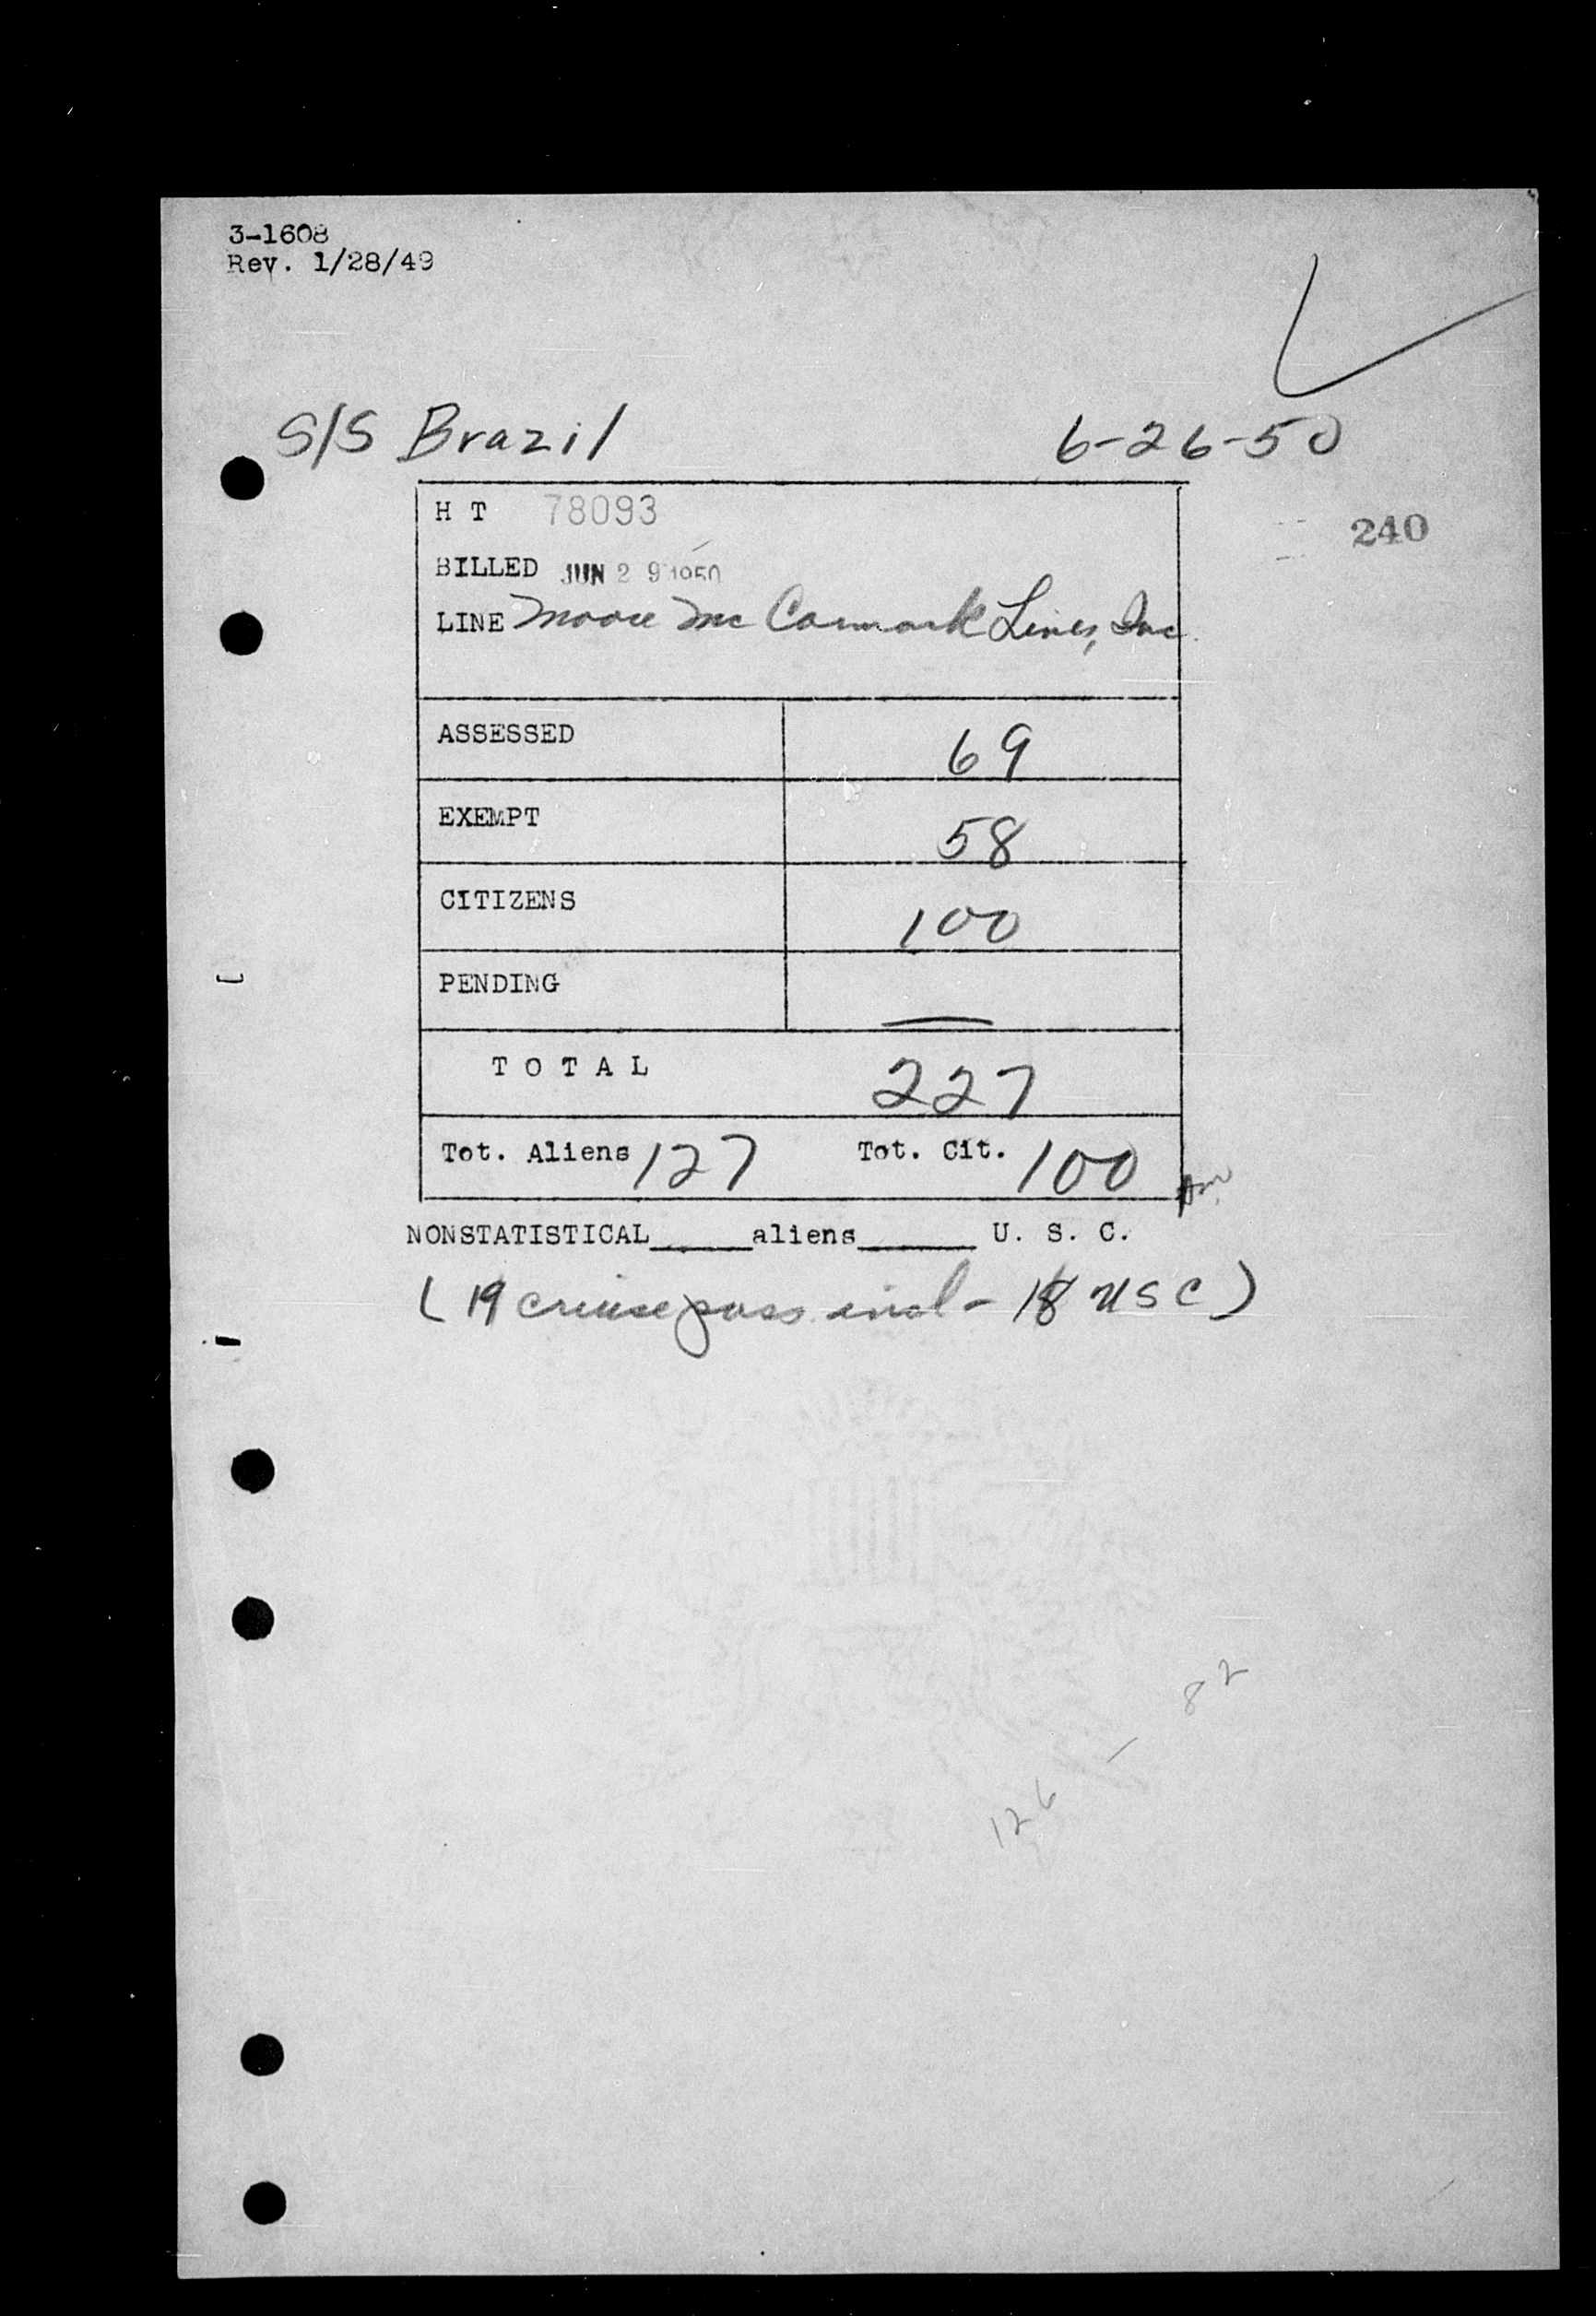 3-1608
Rev. 1/28/49
S/S Brazil 6-26-50
H T 78093
240
BILLED JUN 29 1950
LINE Moore Mc Cormack Lines, Inc.
ASSESSED 69
EXEMPT 58
CITIZENS 100
PENDING —
T O T A L 227
Tot. Aliens 127 Tot. Cit. 100
NONSTATISTICAL_____aliens______ U. S. C.
(19 cruise pass. incl - 18 USC)
82
—
126